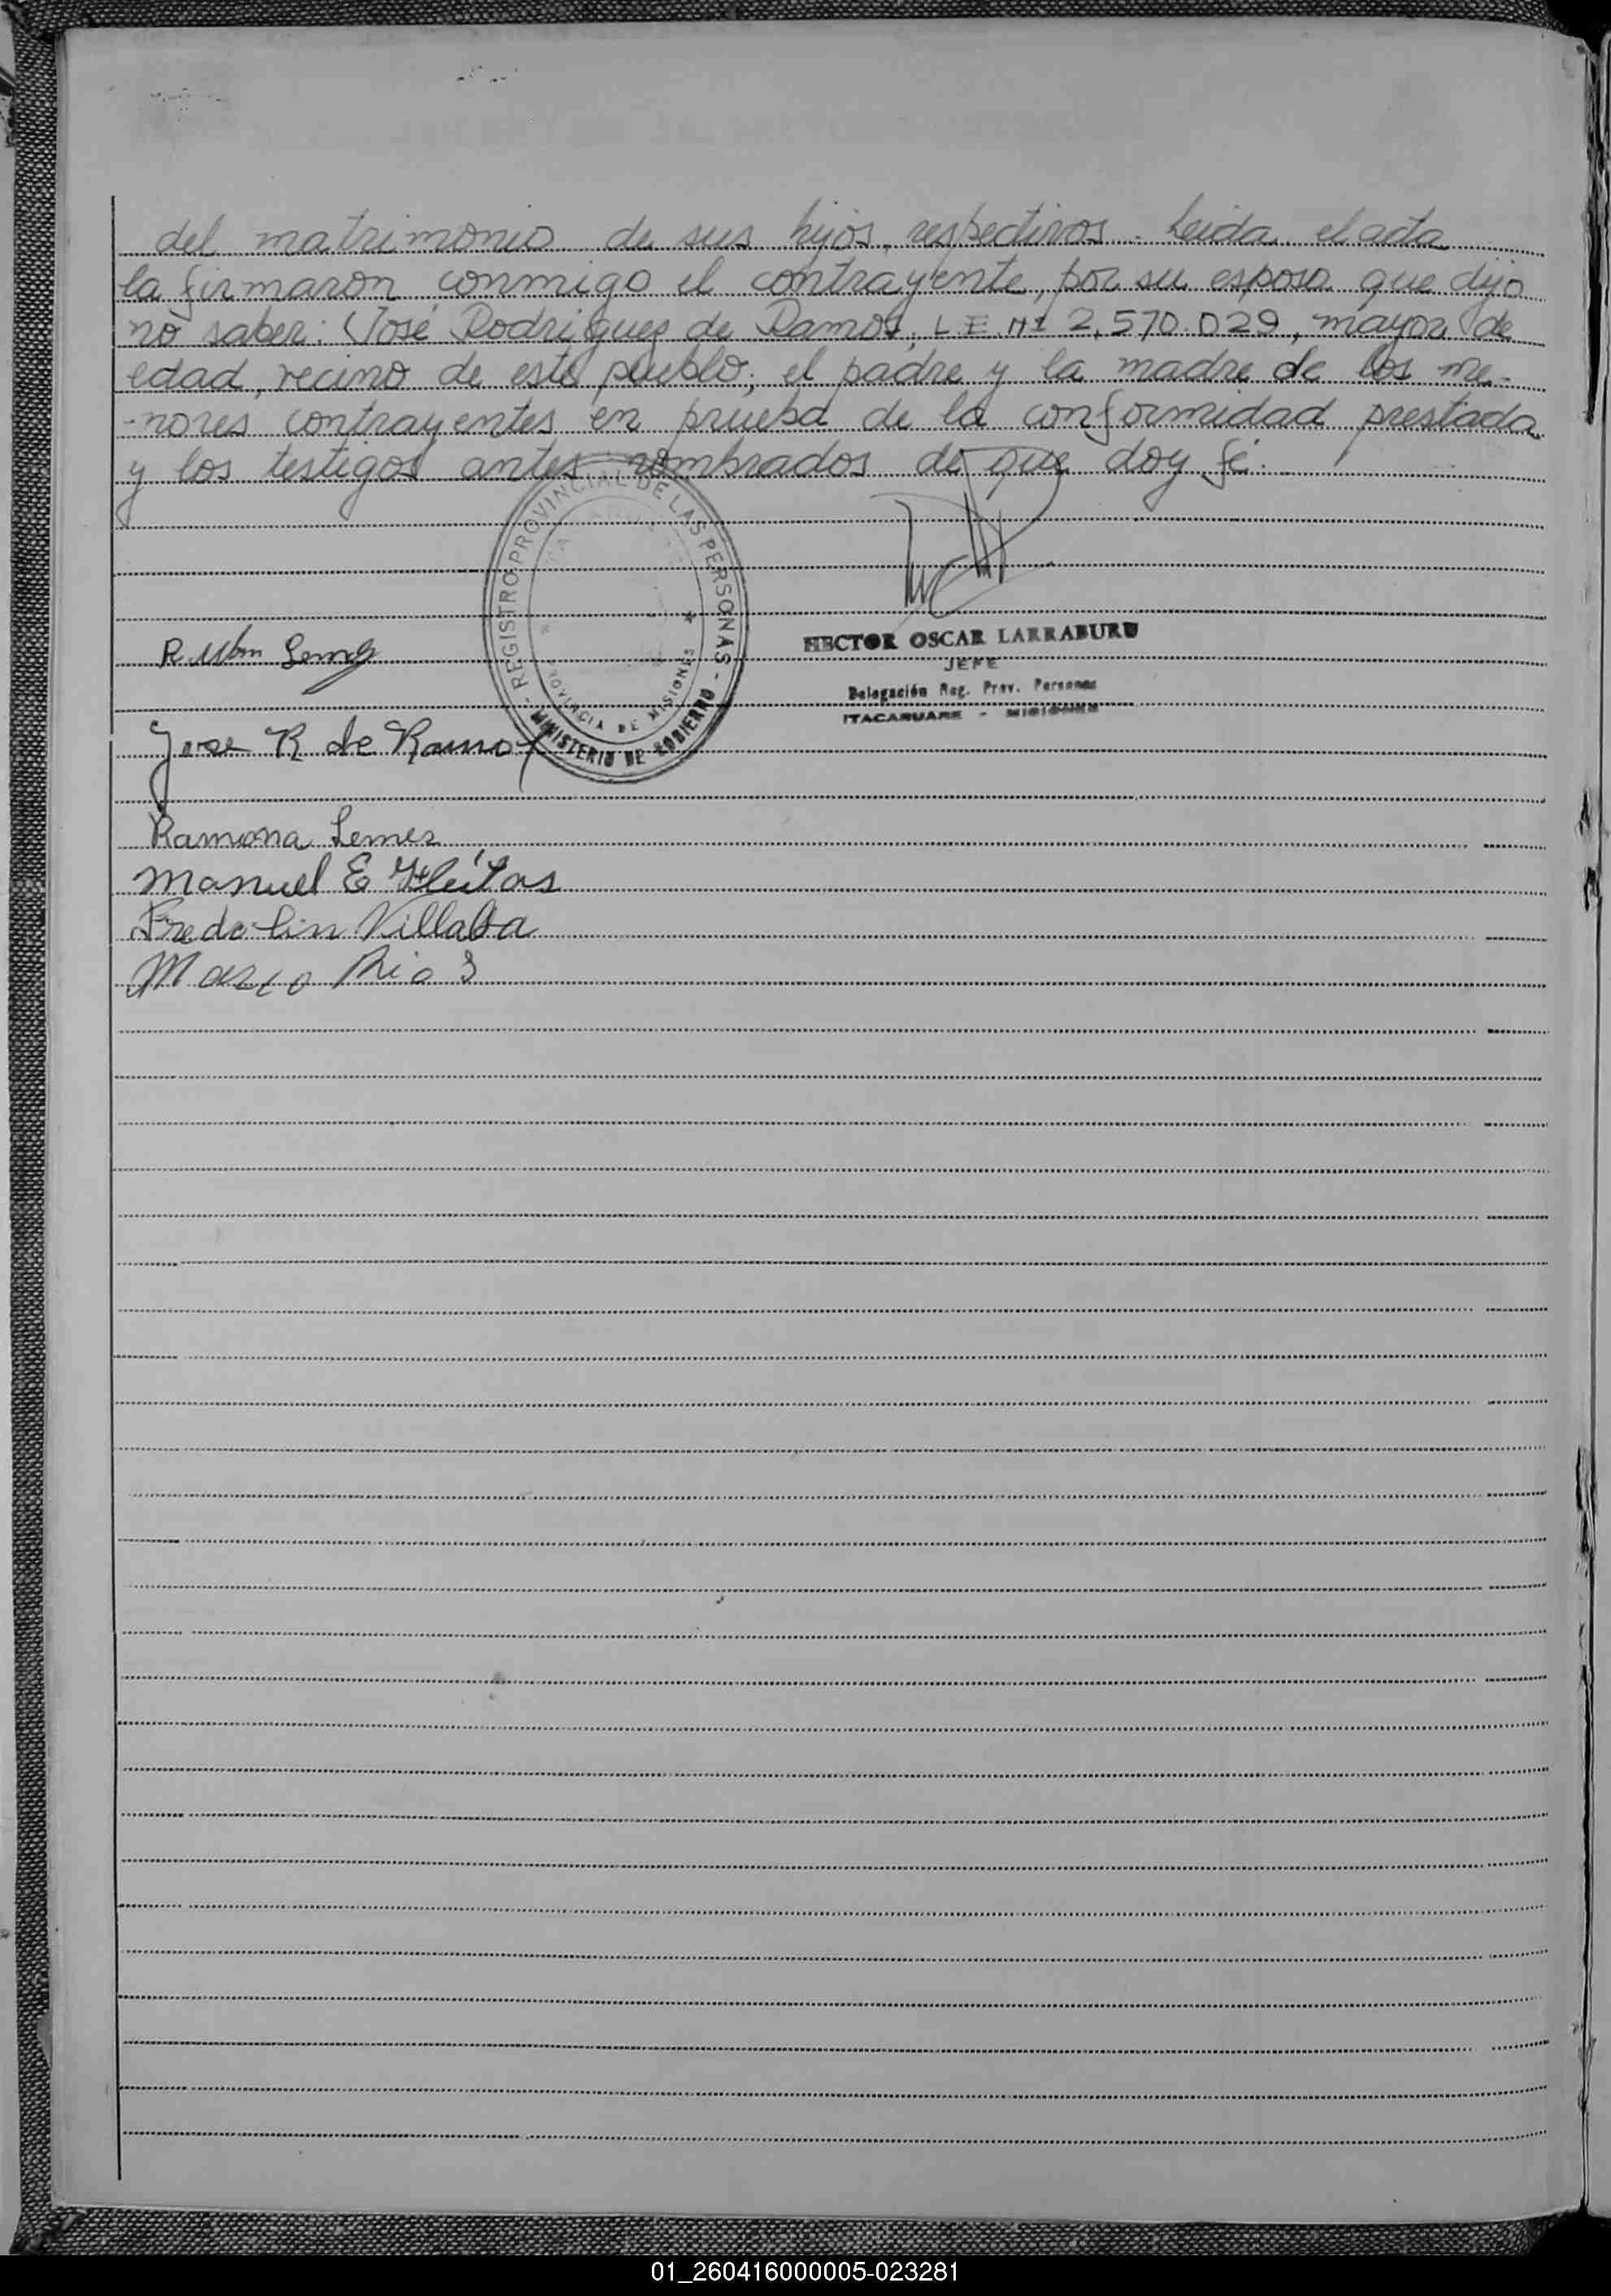 del matrimonio de sus hijos, respectivos. Leida el acta
la firmaron conmigo el contrayente, por su esposa que dijo
no saber: José Rodrigues de Ramos, L E Nº 2.570.029, mayor de
edad, vecino de este pueblo; el padre y la madre de los me-
-nores contrayentes en prueba de la conformidad prestada
y los testigos antes nombrados de que doy fé.
REGISTRO PROVINCIAL DE LAS PERSONAS
PROVINCIA DE MISIONES
MINISTERIO DE GOBIERNO
HECTOR OSCAR LARRABURU
JEFE
Delegación Reg. Prov. Personas
ITACARUARE - MISIONES
Ruben
Jose R de Ramos
Ramona Lemes
Manuel E Fleitas
Fredolin Villalba
Marco Rios
01_260416000005-023281